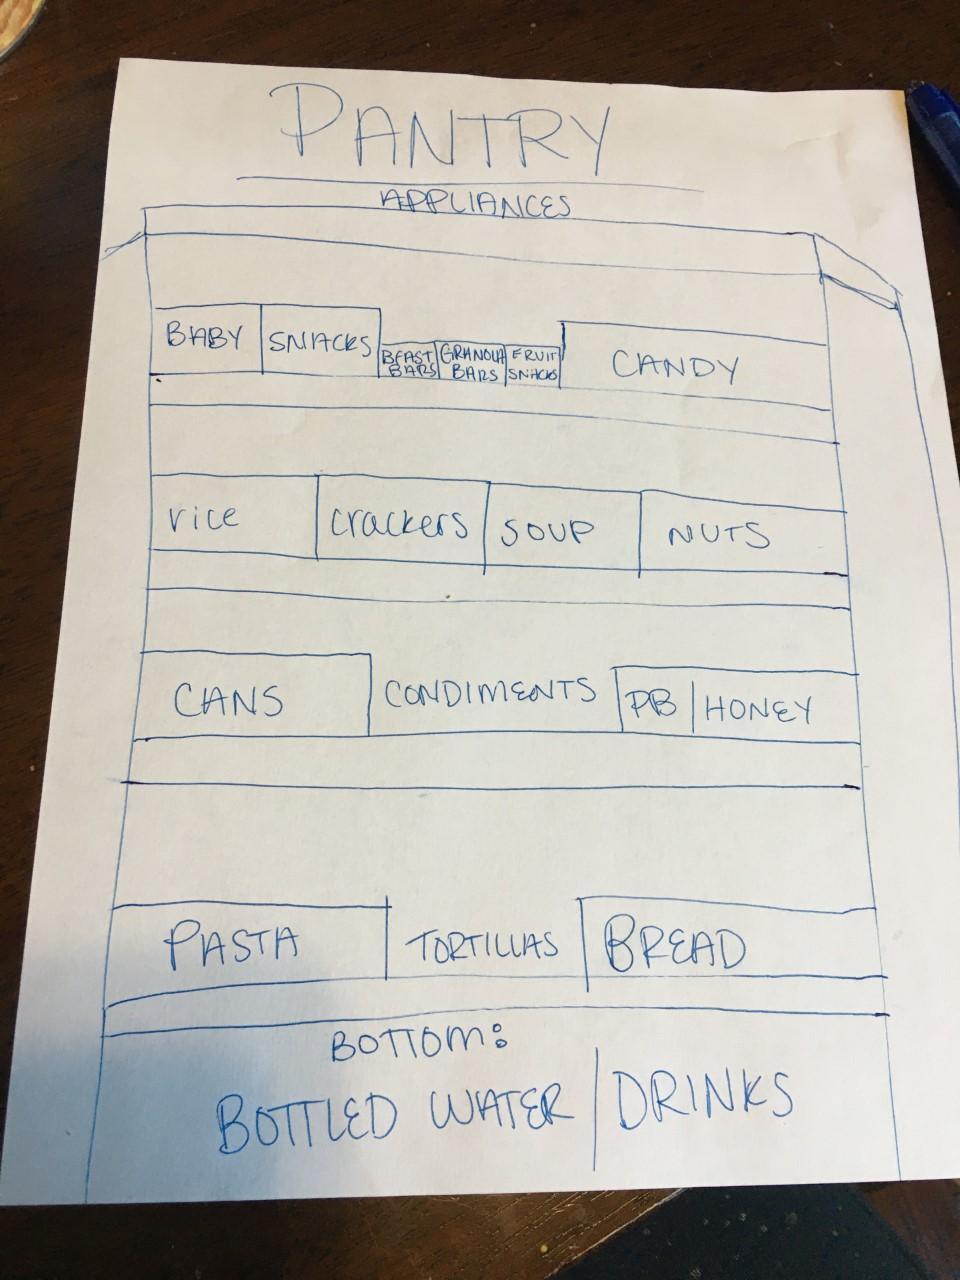 PANTRY
APPLIANCES
BABY SNACKS BEAST BARS GRANOLA BARS FRUIT SNACKS CANDY
rice crackers SOUP NUTS
CANS CONDIMENTS PB | HONEY
PASTA TORTILLAS BREAD
BOTTOM:
BOTTLED WATER | DRINKS